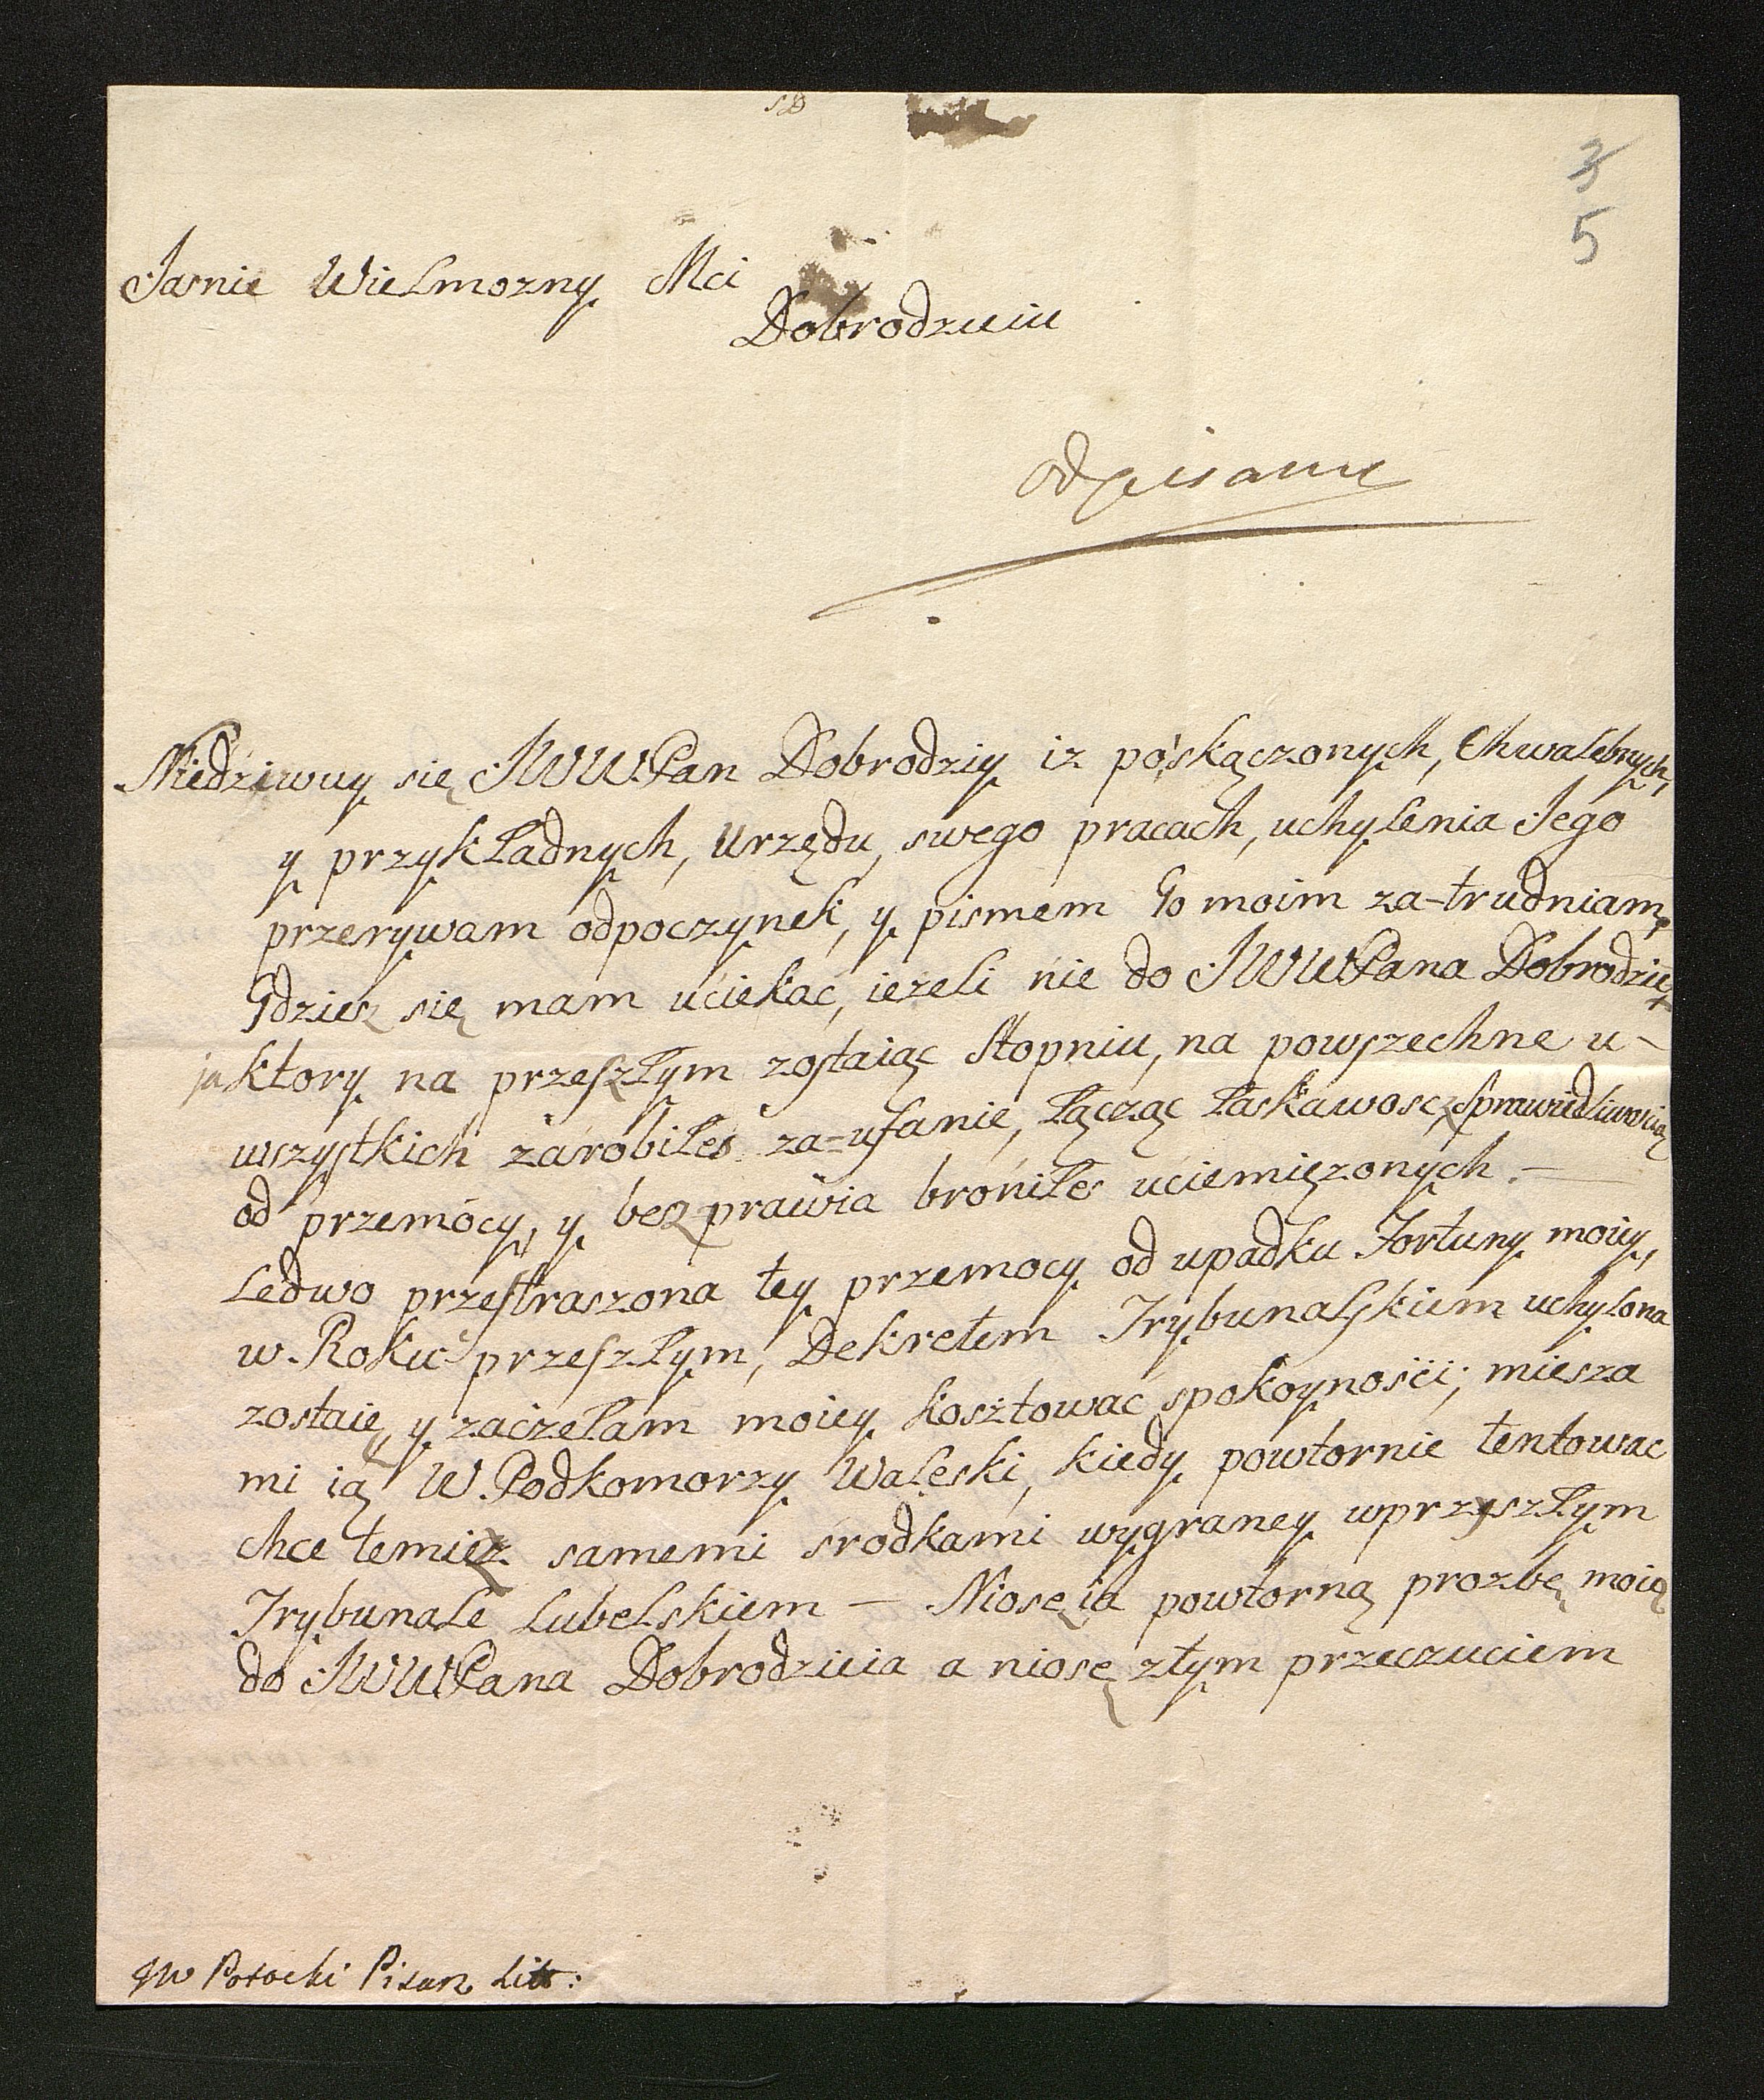 SD
3
5
Jasnie Wielmozny Mci
Dobrodzieiu
odpisany
Niedziwuy się JWWPan Dobrodziey iz po skączonych, Chwalebnych,
y przykładnych, Urzędu, swego pracach, uchylenia Jego
przerywam odpoczynek, y pismem Go moim za-trudniam,
Gdziesz się mam uciekać, ieżeli nie do JWWPana Dobrodzie
ja ktory na przeszłym zostaiąc Stopniu, na powszechne u-
wszystkich zarobiłes za=ufanie, Łącząc Łaskawosc z Sprawiedliwoscią
od przemocy, y bezprawia broniłes uciemięzonych. —
Ledwo przestraszona tey przemocy od upadku Fortuny moiey,
w Roku przeszłym, Dekretem Trybunalskiem uchylona
zostaię, y zaczełam moiey kosztowac spokoynosci; miesza
mi ią W. Podkomorzy Waleski, kiedy powtornie tentowac
chce temiez samemi srodkami wygraney wprzyszłym
Trybunale Lubelskiem — Niosę ia powtorną prozbę moię
do JWWPana Dobrodzieia a niosę złym przeczuciem
JW Potocki Pisarz Litt: